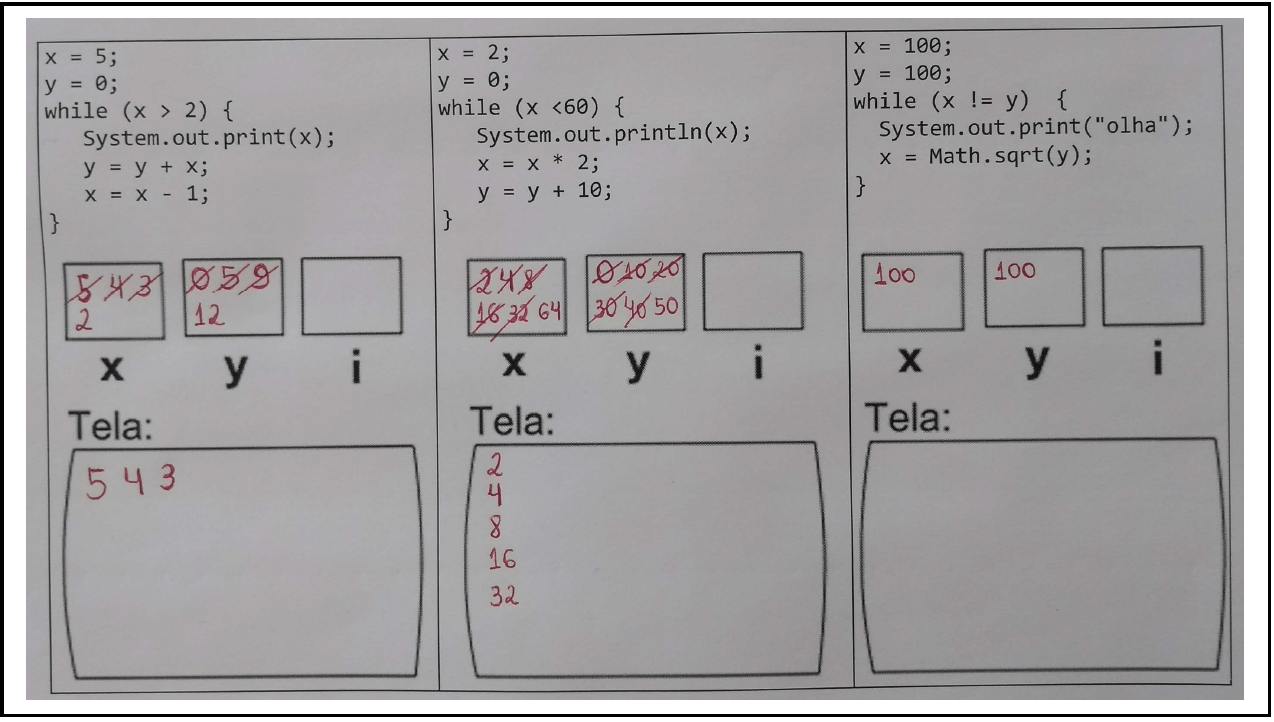 x = 5;
y = 0;
while (x > 2) {
System.out.print(x);
y = y + x;
x = x - 1;
}
5 4 3
2
0 5 9
12
x y i
Tela:
5 4 3
x = 2;
y = 0;
while (x <60) {
System.out.println(x);
x = x * 2;
y = y + 10;
}
2 4 8
16 32 64
0 10 20
30 40 50
x y i
Tela:
2
4
8
16
32
x = 100;
y = 100;
while (x != y) {
System.out.print("olha");
x = Math.sqrt(y);
}
100
100
x y i
Tela: